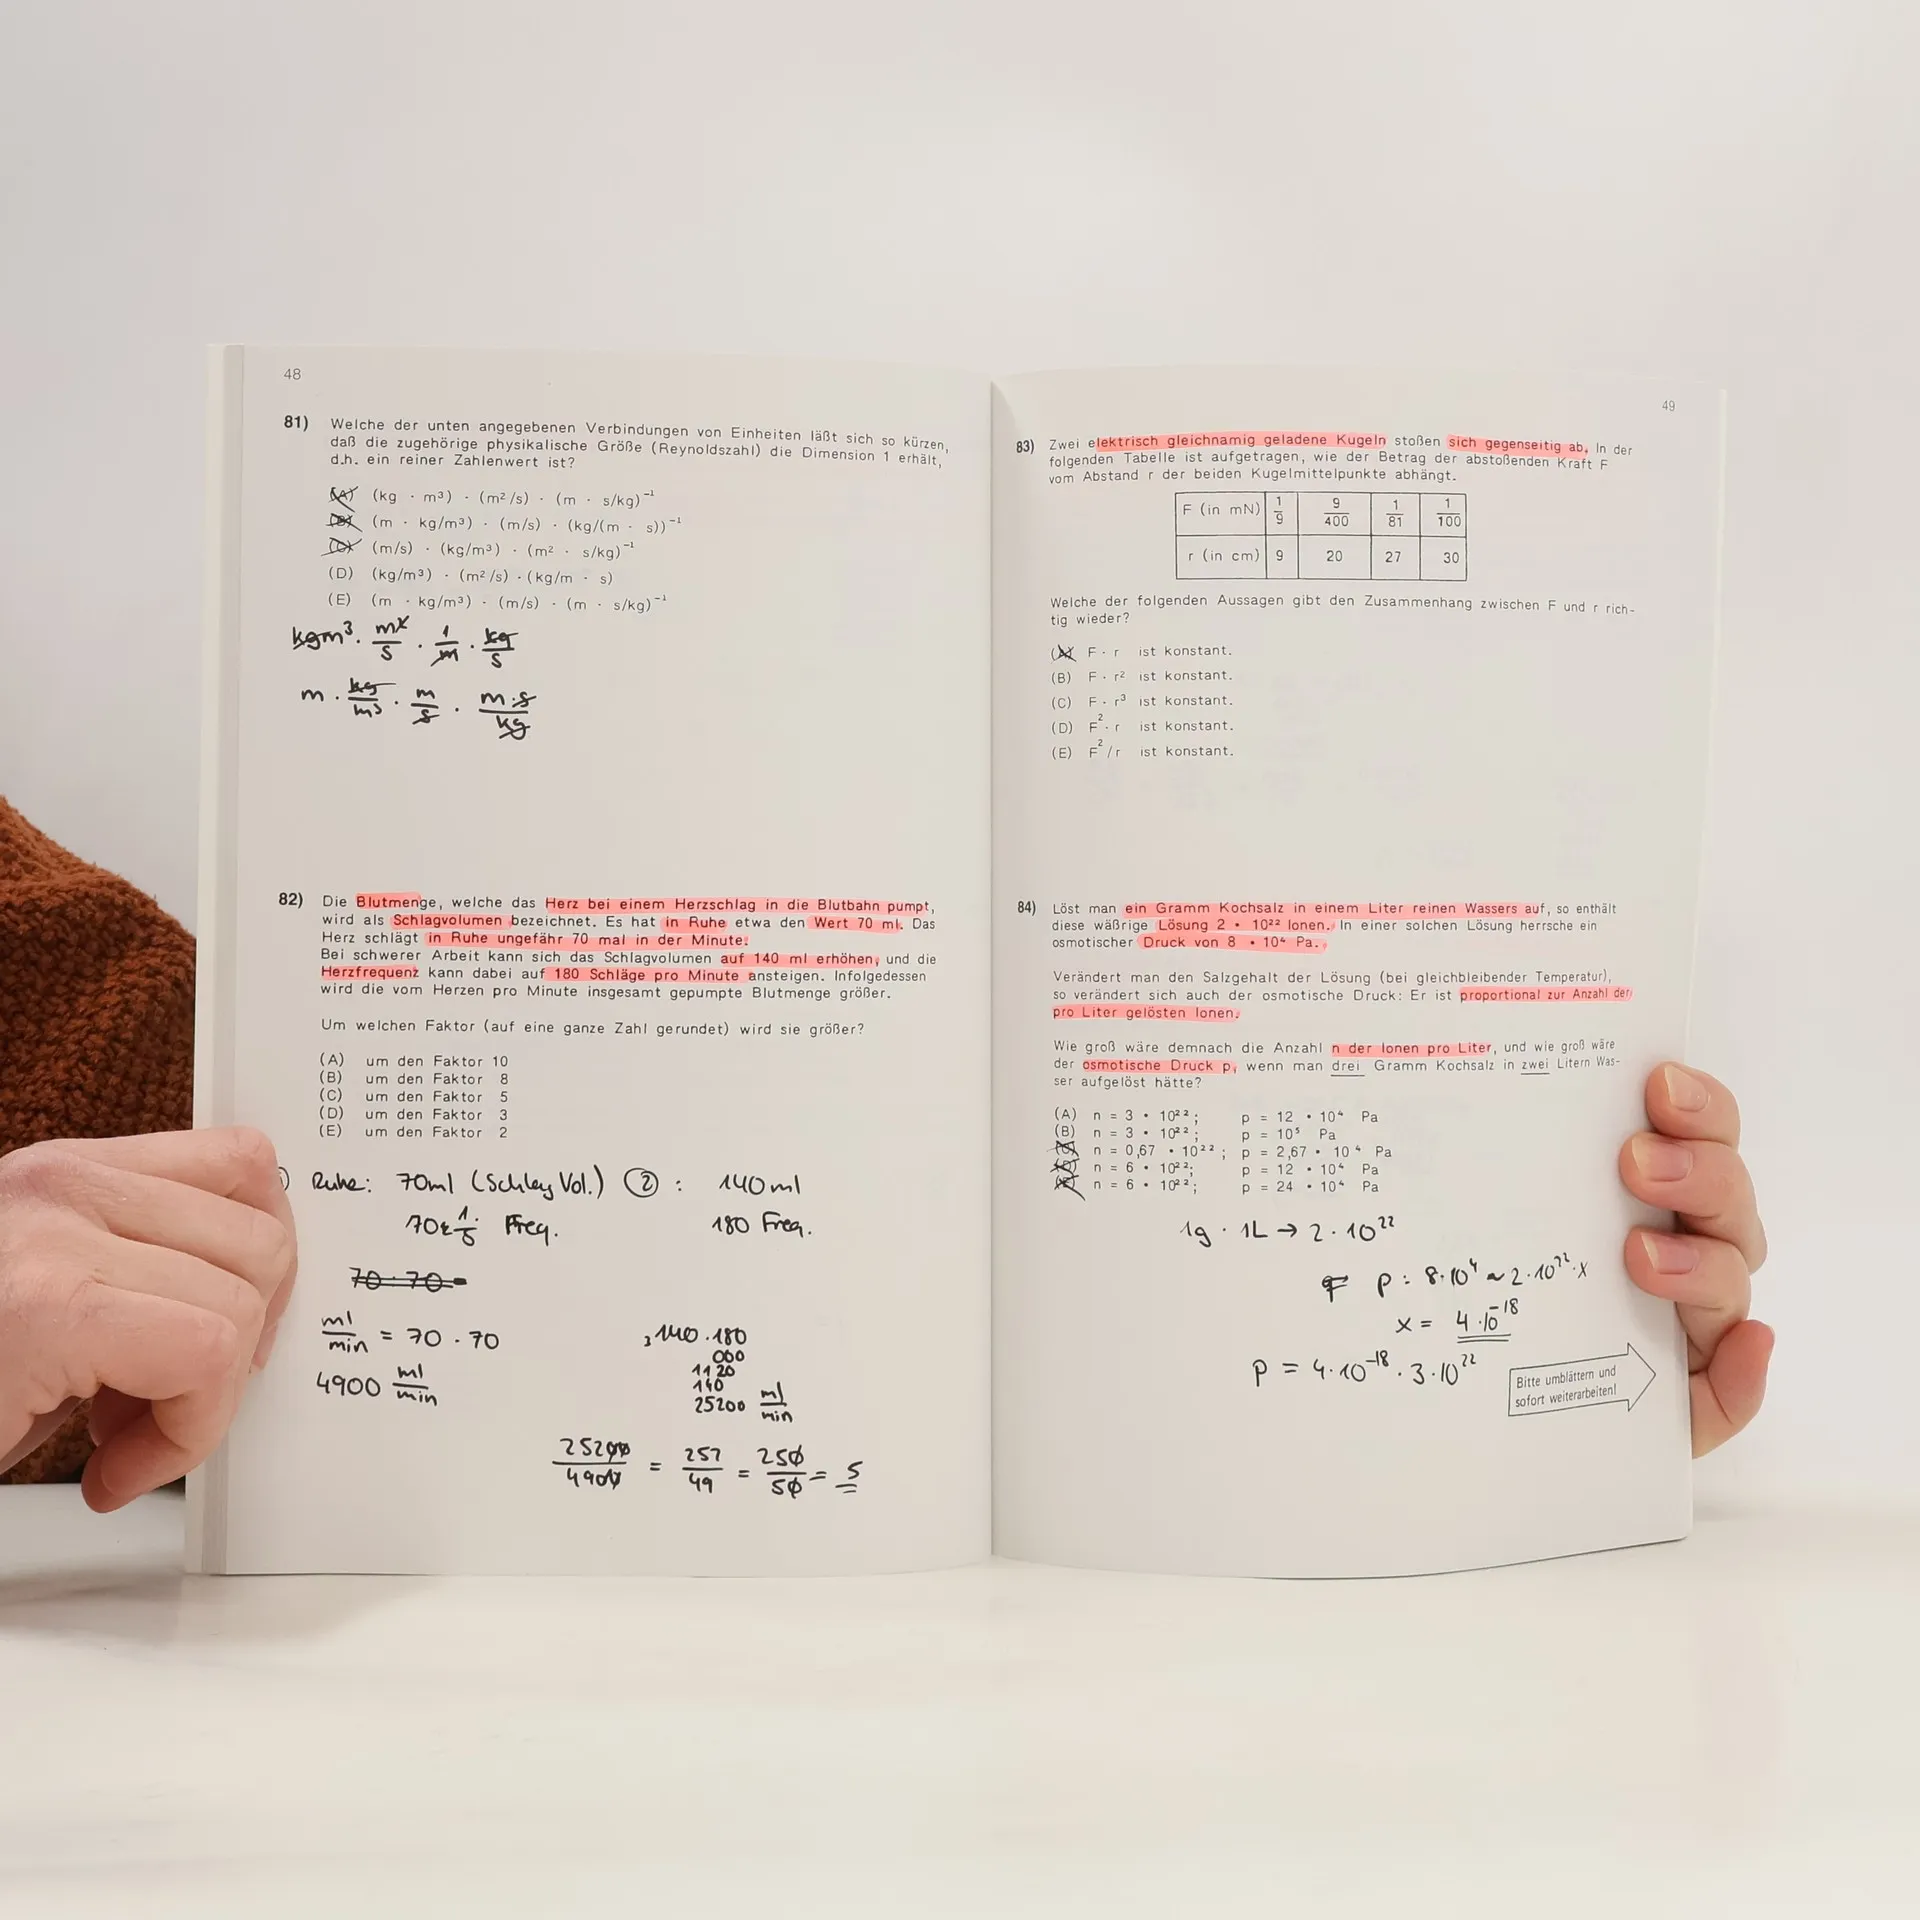 48
81) Welche der unten angegebenen Verbindungen von Einheiten läßt sich so kürzen,
daß die zugehörige physikalische Größe (Reynoldszahl) die Dimension 1 erhält,
d.h. ein reiner Zahlenwert ist?
(A) (kg · m³) · (m²/s) · (m · s/kg)⁻¹
(B) (m · kg/m³) · (m/s) · (kg/(m · s))⁻¹
(C) (m/s) · (kg/m³) · (m² · s/kg)⁻¹
(D) (kg/m³) · (m²/s) · (kg/m · s)
(E) (m · kg/m³) · (m/s) · (m · s/kg)⁻¹
kgm³ · m²/s · 1/m · kg/s
m · kg/m³ · m/s · m·s/kg
82) Die Blutmenge, welche das Herz bei einem Herzschlag in die Blutbahn pumpt,
wird als Schlagvolumen bezeichnet. Es hat in Ruhe etwa den Wert 70 ml. Das
Herz schlägt in Ruhe ungefähr 70 mal in der Minute.
Bei schwerer Arbeit kann sich das Schlagvolumen auf 140 ml erhöhen, und die
Herzfrequenz kann dabei auf 180 Schläge pro Minute ansteigen. Infolgedessen
wird die vom Herzen pro Minute insgesamt gepumpte Blutmenge größer.
Um welchen Faktor (auf eine ganze Zahl gerundet) wird sie größer?
(A) um den Faktor 10
(B) um den Faktor 8
(C) um den Faktor 5
(D) um den Faktor 3
(E) um den Faktor 2
Ruhe: 70ml (Schlag Vol.) ② : 140ml
Freq. 180 Freq.
70 · 70
ml/min = 70 · 70
4900 ml/min
140 · 180
000
1120
140
25200 ml/min
25200/4900 = 252/49 = 250/50 = 5
49
83) Zwei elektrisch gleichnamig geladene Kugeln stoßen sich gegenseitig ab. In der
folgenden Tabelle ist aufgetragen, wie der Betrag der abstoßenden Kraft F
vom Abstand r der beiden Kugelmittelpunkte abhängt.
F (in mN) 1/9 9/400 1/81 1/100
r (in cm) 9 20 27 30
Welche der folgenden Aussagen gibt den Zusammenhang zwischen F und r rich-
tig wieder?
(A) F · r ist konstant.
(B) F · r² ist konstant.
(C) F · r³ ist konstant.
(D) F² · r ist konstant.
(E) F²/r ist konstant.
84) Löst man ein Gramm Kochsalz in einem Liter reinen Wassers auf, so enthält
diese wäßrige Lösung 2 • 10²² Ionen. In einer solchen Lösung herrsche ein
osmotischer Druck von 8 • 10⁴ Pa.
Verändert man den Salzgehalt der Lösung (bei gleichbleibender Temperatur),
so verändert sich auch der osmotische Druck: Er ist proportional zur Anzahl der
pro Liter gelösten Ionen.
Wie groß wäre demnach die Anzahl n der Ionen pro Liter, und wie groß wäre
der osmotische Druck p, wenn man drei Gramm Kochsalz in zwei Litern Was-
ser aufgelöst hätte?
(A) n = 3 • 10²²; p = 12 • 10⁴ Pa
(B) n = 3 • 10²²; p = 10⁵ Pa
(C) n = 0,67 • 10²²; p = 2,67 • 10⁴ Pa
(D) n = 6 • 10²²; p = 12 • 10⁴ Pa
(E) n = 6 • 10²²; p = 24 • 10⁴ Pa
1g · 1L → 2 · 10²²
p : 8·10⁴ ~ 2·10²²·x
x = 4·10⁻¹⁸
p = 4·10⁻¹⁸ · 3·10²²
Bitte umblättern und
sofort weiterarbeiten!